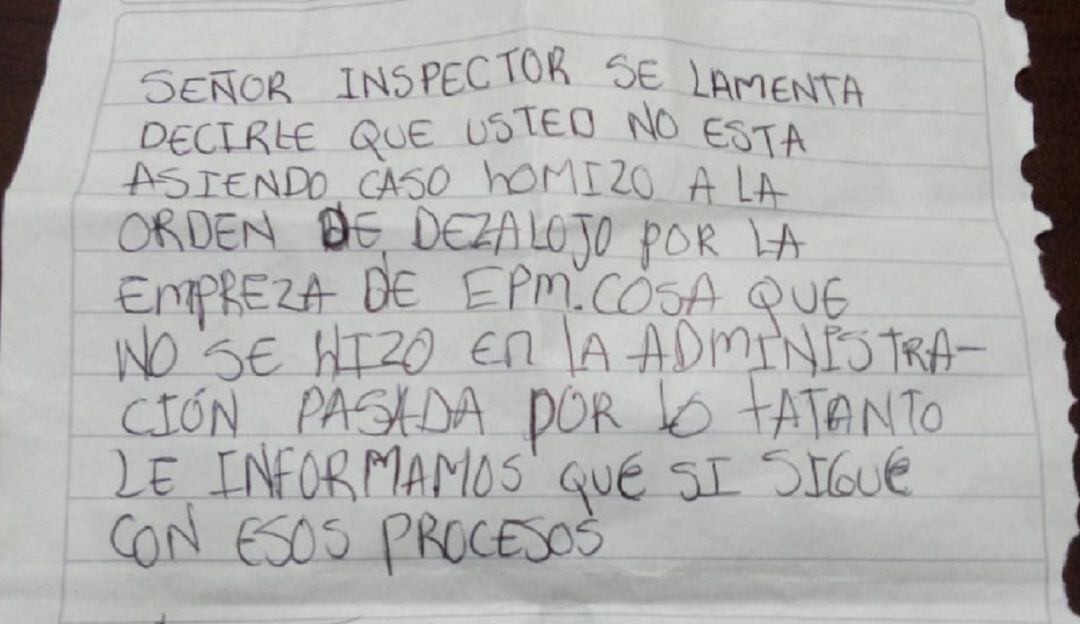 SEÑOR INSPECTOR SE LAMENTA
DECIRLE QUE USTED NO ESTA
ASIENDO CASO hOMIZO A LA
ORDEN DE DEZALOJO POR LA
EMPREZA DE EPM. COSA QUE
NO SE HIZO En lA ADMINISTRA-
CIÓN PASADA POR lo tATANTO
LE INFORMAMOS QUE SI SIGUE
CON ESOS PROCESOS